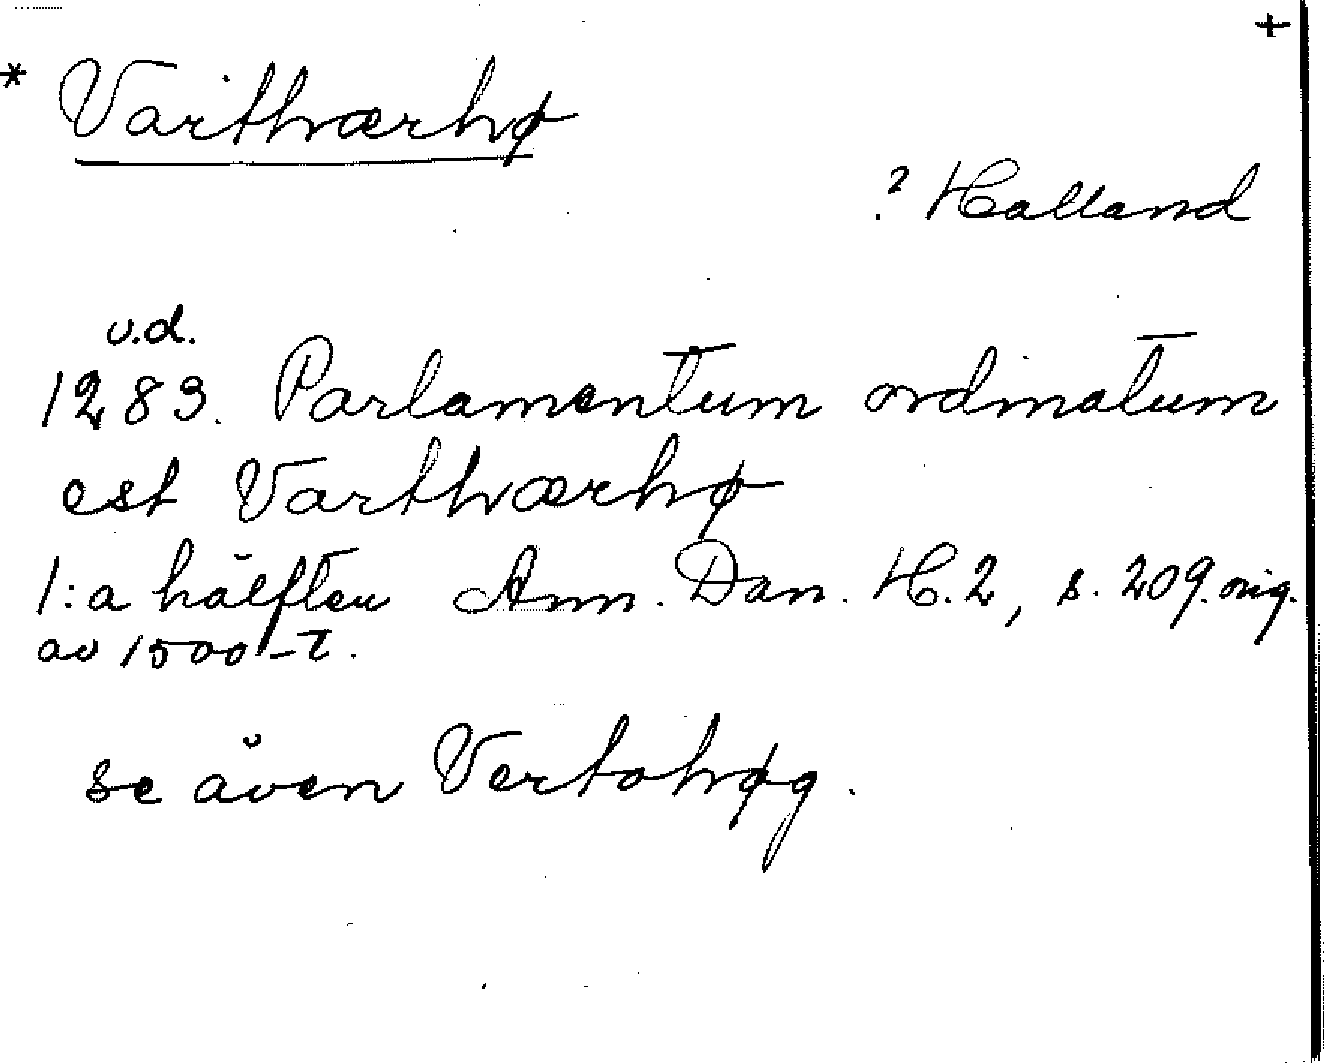 +
* Varthværhø
? Halland
u.d.
1283. Parlamentum ordinatum
est Varthværhø
1:a hälften Ann. Dan. H.2, s. 209. orig.
av 1500-t.
se även Vertohøg.